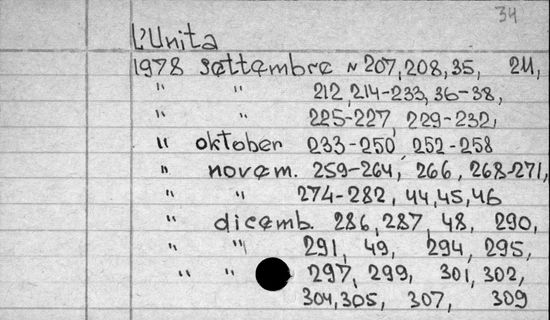 34
L'Unita
1978 settembre N 207, 208, 35, 211,
" " 212, 214-233, 36-38,
" " 225-227, 229-232,
" oktober 233-250, 252-258
" novem. 259-264, 266, 268-271,
" " 274-282, 44, 45, 46
" dicemb. 286, 287, 48, 290,
" " 291, 49, 294, 295,
" " 297, 299, 301, 302,
304, 305, 307, 309